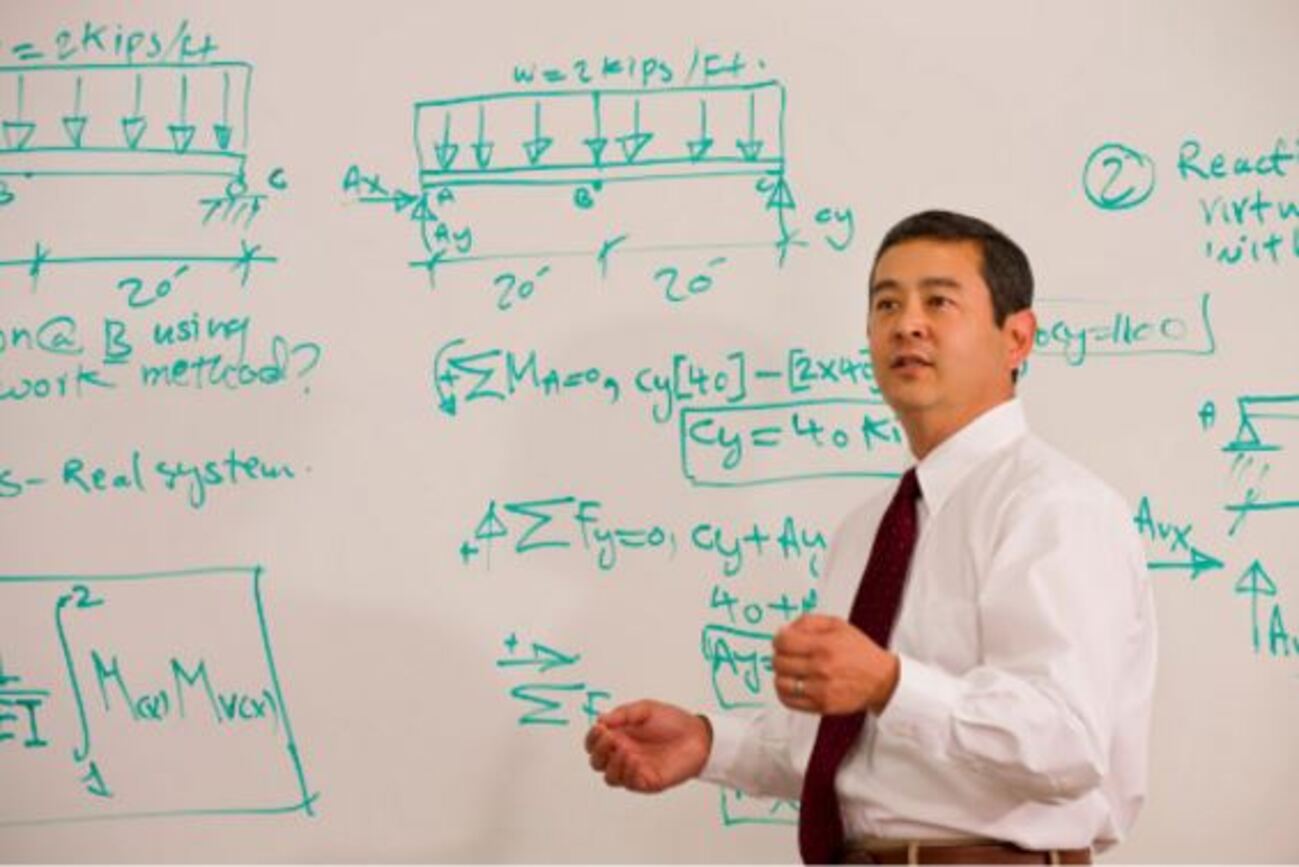 = 2 Kips/Ft
B
C
20'
on@ B using
work method?
s- Real system.
EI
2
M(x) Mv(x)
1
w = 2 Kips /Ft.
Ax
A
B
C
Ay
Cy
20' 20'
+ ΣMA=0, Cy[40] - [2x40
Cy = 40 Ki
+ ΣFy=0, Cy + Ay
40 +
Ay =
+
ΣF
2 React
virtu
A
Avx